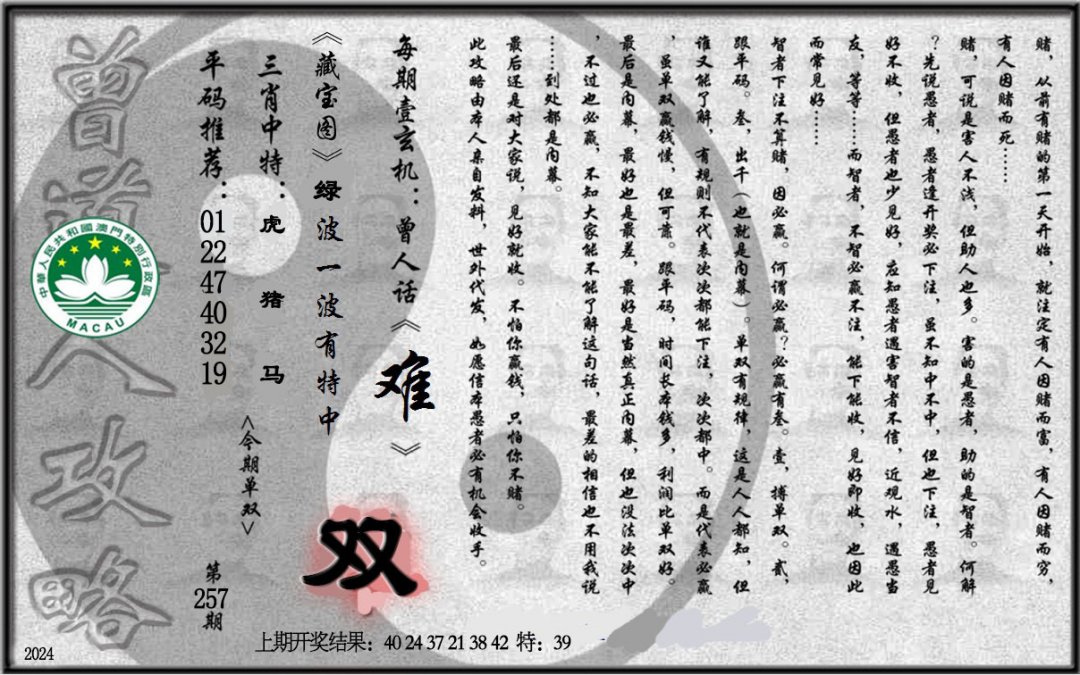 赌，从前有赌的第一天开始，就注定有人因赌而富，有人因赌而穷，
有人因赌而死……
赌，可说是害人不浅，但助人也多。害的是愚者，助的是智者。何解
？先说愚者，愚者逢开奖必下注，虽不知中不中，但也下注，愚者见
好不收，但愚者也少见好，应知愚者遇害智者不信，近观水，遇愚当
友，等等……而智者，不智必赢不注，能下能收，见好即收，也因此
而常见好……
智者下注不算赌，因必赢。何谓必赢？必赢有叁。壹，搏单双。贰，
跟平码。叁，出千（也就是内幕）。单双有规律，这是人人都知，但
谁又能了解，有规则不代表次次都能下注，次次都中。而是代表必赢
，虽单双赢钱慢，但可靠。跟平码，时间长本钱多，利润比单双好。
最后是内幕，最好也是最差，最好是当然真正内幕，但也没法次次中
，不过也必赢，不知大家能不能了解这句话，最差的相信也不用我说
……到处都是内幕。
最后还是对大家说，见好就收。不怕你赢钱，只怕你不赌。
此攻略由本人亲自发料，世外代发，如愿信本愚者必有机会收手。
每期壹玄机：曾人话《难》
《藏宝图》绿波一波有特中
双
三肖中特：虎 猪 马
<今期单双>
平码推荐：01 22 47 40 32 19
第257期
曾道人攻略
中華人民共和國澳門特別行政區
MACAU
上期开奖结果：40 24 37 21 38 42 特：39
2024